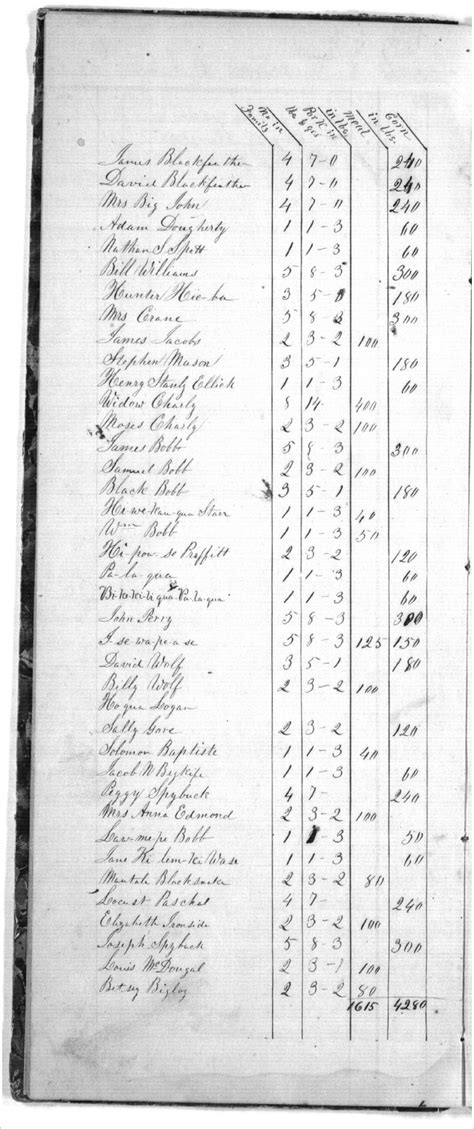 No in Family No & qrs Pork in in lbs Meal in lbs. Corn
James Blackfeather 4 7-0 240
David Blackfeather 4 7-0 240
Mrs Big John 4 7-0 240
Adam Dougherty 1 1-3 60
Nathan S Spitt 1 1-3 60
Bill Williams 5 8-3 300
Hunter 3 5- 180
Mrs Crane 5 8-3 300
James Jacobs 2 3-2 100
Stephen Mason 3 5-1 180
Henry Ellick 1 1-3 60
Widow Charly 8 14- 400
Moses Charly 2 3-2 100
James Bobb 5 8-3 300
Samuel Bobb 2 3-2 100
Black Bobb 3 5-1 180
Hi-we-kau-qua Starr 1 1-3 40
Wm Bobb 1 1-3 50
Hi-pou-se Proffitt 2 3-2 120
Pa-la-qua 1 1-3 60
Pa-la-qua 1 1-3 60
John Perry 5 8-3 300
I-se-wa-pe-a-se 5 8-3 125 150
David Wolf 3 5-1 180
Billy Wolf 2 3-2 100
Logan
Sally Gore 2 3-2 120
Solomon Baptiste 1 1-3 40
Jacob N 1 1-3 60
Peggy Spybuck 4 7- 240
Mrs Anna Edmond 2 3-2 100
Bobb 1 1-3 50
Jane 1 1-3 60
Blacksnake 2 3-2 80
Locust Paschal 4 7- 240
Elizabeth Ironside 2 3-2 100
Joseph Spybuck 5 8-3 300
Louis McDougal 2 3-1 100
Betsey Bigboy 2 3-2 80
1615 4280